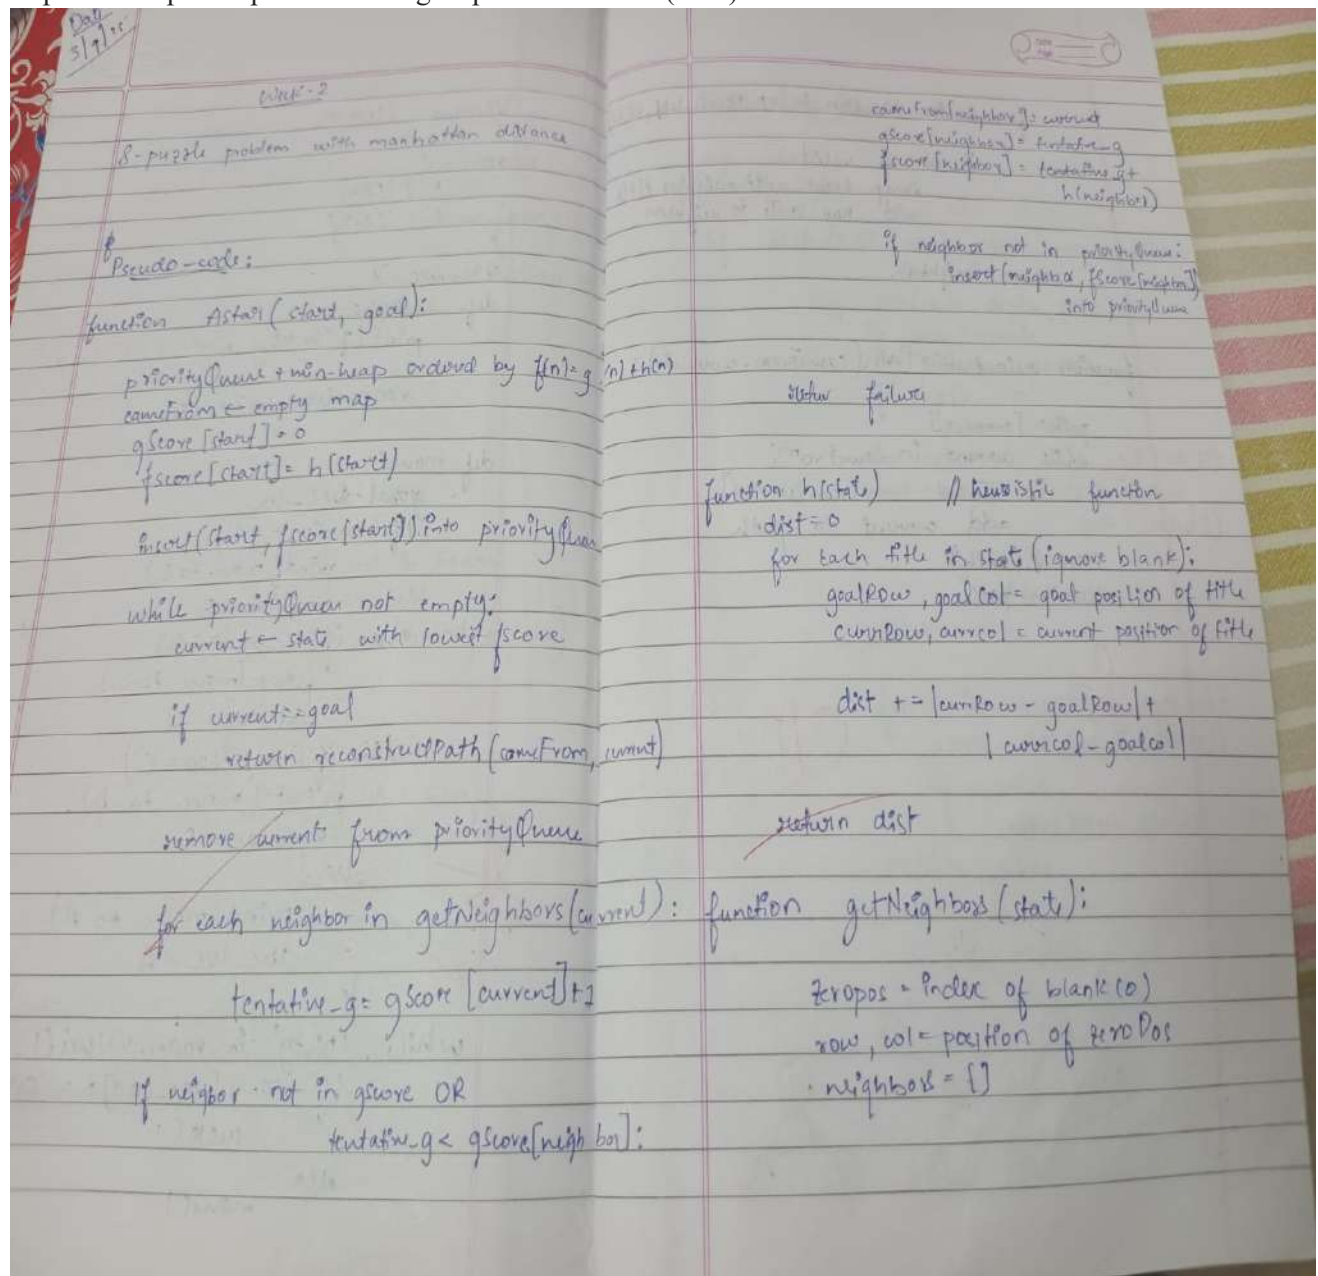 Day
3/9/25
Week-2
8-puzzle problem with manhattan distance
Pseudo-code:
function Astar(start, goal):
priorityQueue ← min-heap ordered by f(n)= g(n)+h(n)
cameFrom ← empty map
gScore[start] = 0
fscore[start] = h(start)
insert(start, fscore[start]) into priorityQueue
while priorityQueue not empty:
current ← state with lowest fscore
if current == goal
return reconstructPath(cameFrom, current)
remove current from priorityQueue
for each neighbor in getNeighbors(current):
tentative_g = gScore[current]+1
If neigbor not in gscore OR
tentative_g < gScore[neighbor]:
cameFrom[neighbor]: current
gScore[neighbor] = tentative_g
fscore[neighbor] = tentative_g +
h(neighbor)
if neighbor not in priorityQueue:
insert(neighbor, fScore[neighbor])
into priorityQueue
return failure
function h(state) // heuristic function
dist = 0
for each title in state (ignore blank):
goalRow, goalCol = goal position of title
currRow, currcol = current position of title
dist += |currRow - goalRow| +
|currcol - goalcol|
return dist
function getNeighbors(state):
zeropos = index of blank (0)
row, col = position of zeroPos
neighbors = []